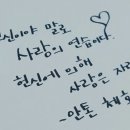 헌신이야 말로
사랑의 연습이다.
헌신에 의해
사랑은 자란
-안톤 체호